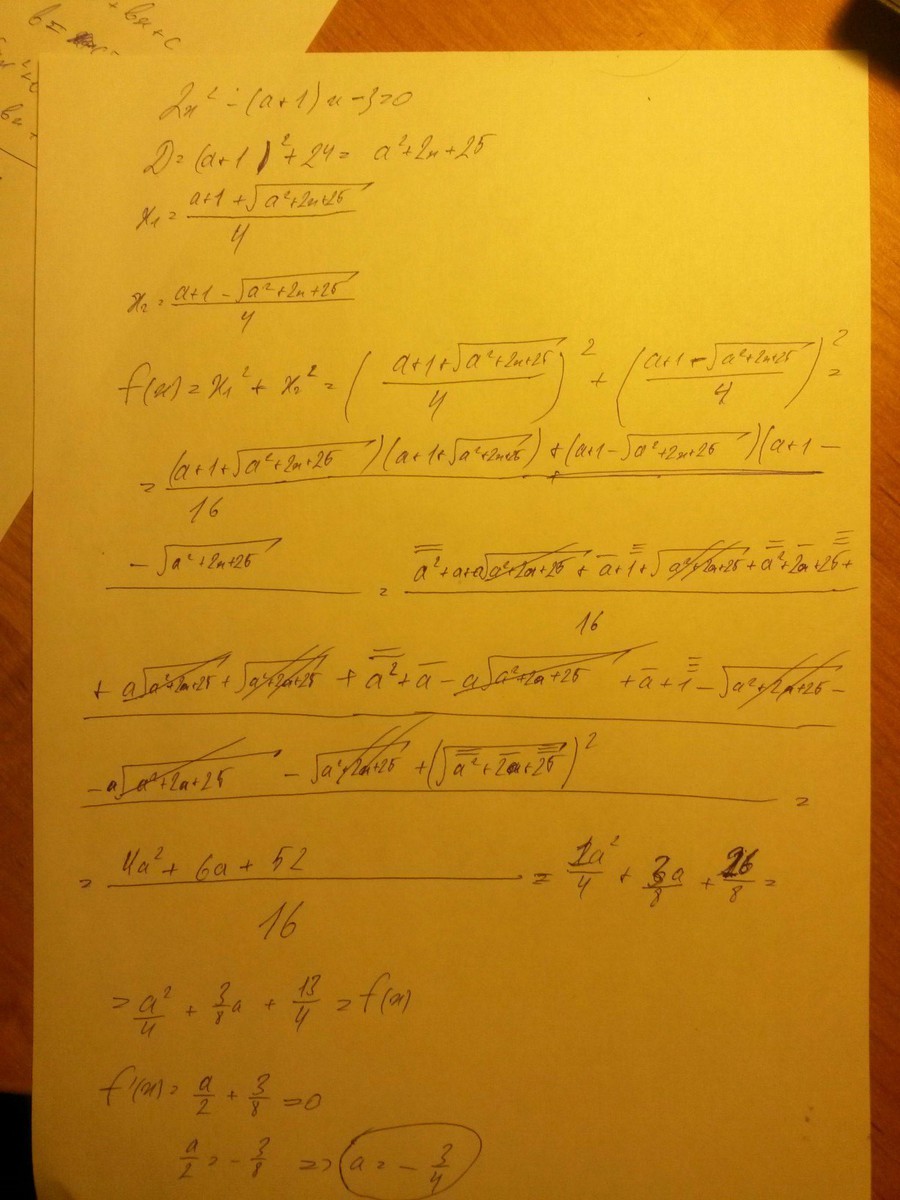 + bx + c
b =
2x² - (a+1)x - 3 = 0
D = (a+1)² + 24 = a² + 2x + 25
x₁ = (a+1+√(a²+2x+25))/4
x₂ = (a+1-√(a²+2x+25))/4
f(x) = x₁² + x₂² = ((a+1+√(a²+2x+25))/4)² + ((a+1-√(a²+2x+25))/4)² =
= ((a+1+√(a²+2x+25))(a+1+√(a²+2x+25)) + (a+1-√(a²+2x+25))(a+1-
/16
-√(a²+2x+25) = a²+a+a√(a²+2a+25) + a+1+√(a²+2a+25)+a²+2a+25+
/16
+ a√(a²+2a+25)+√(a²+2a+25) + a²+a-a√(a²+2a+25) +a+1-√(a²+2a+25)-
-a√(a²+2a+25) - √(a²+2a+25) +(√(a²+2a+25))² =
= (4a² + 6a + 52)/16 = 1a²/4 + 3a/8 + 26/8 =
= a²/4 + 3/8 a + 13/4 = f(x)
f'(x) = a/2 + 3/8 = 0
a/2 = -3/8 => a = -3/4